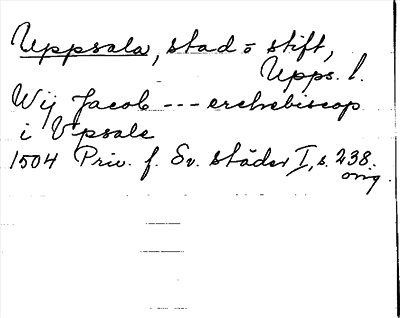 Uppsala, stad o stift,
Upps. l.
Wij Jacob --- erchebiscop
i Vpsale
1504 Priv. f. Sv. städer I, s. 238.
orig.